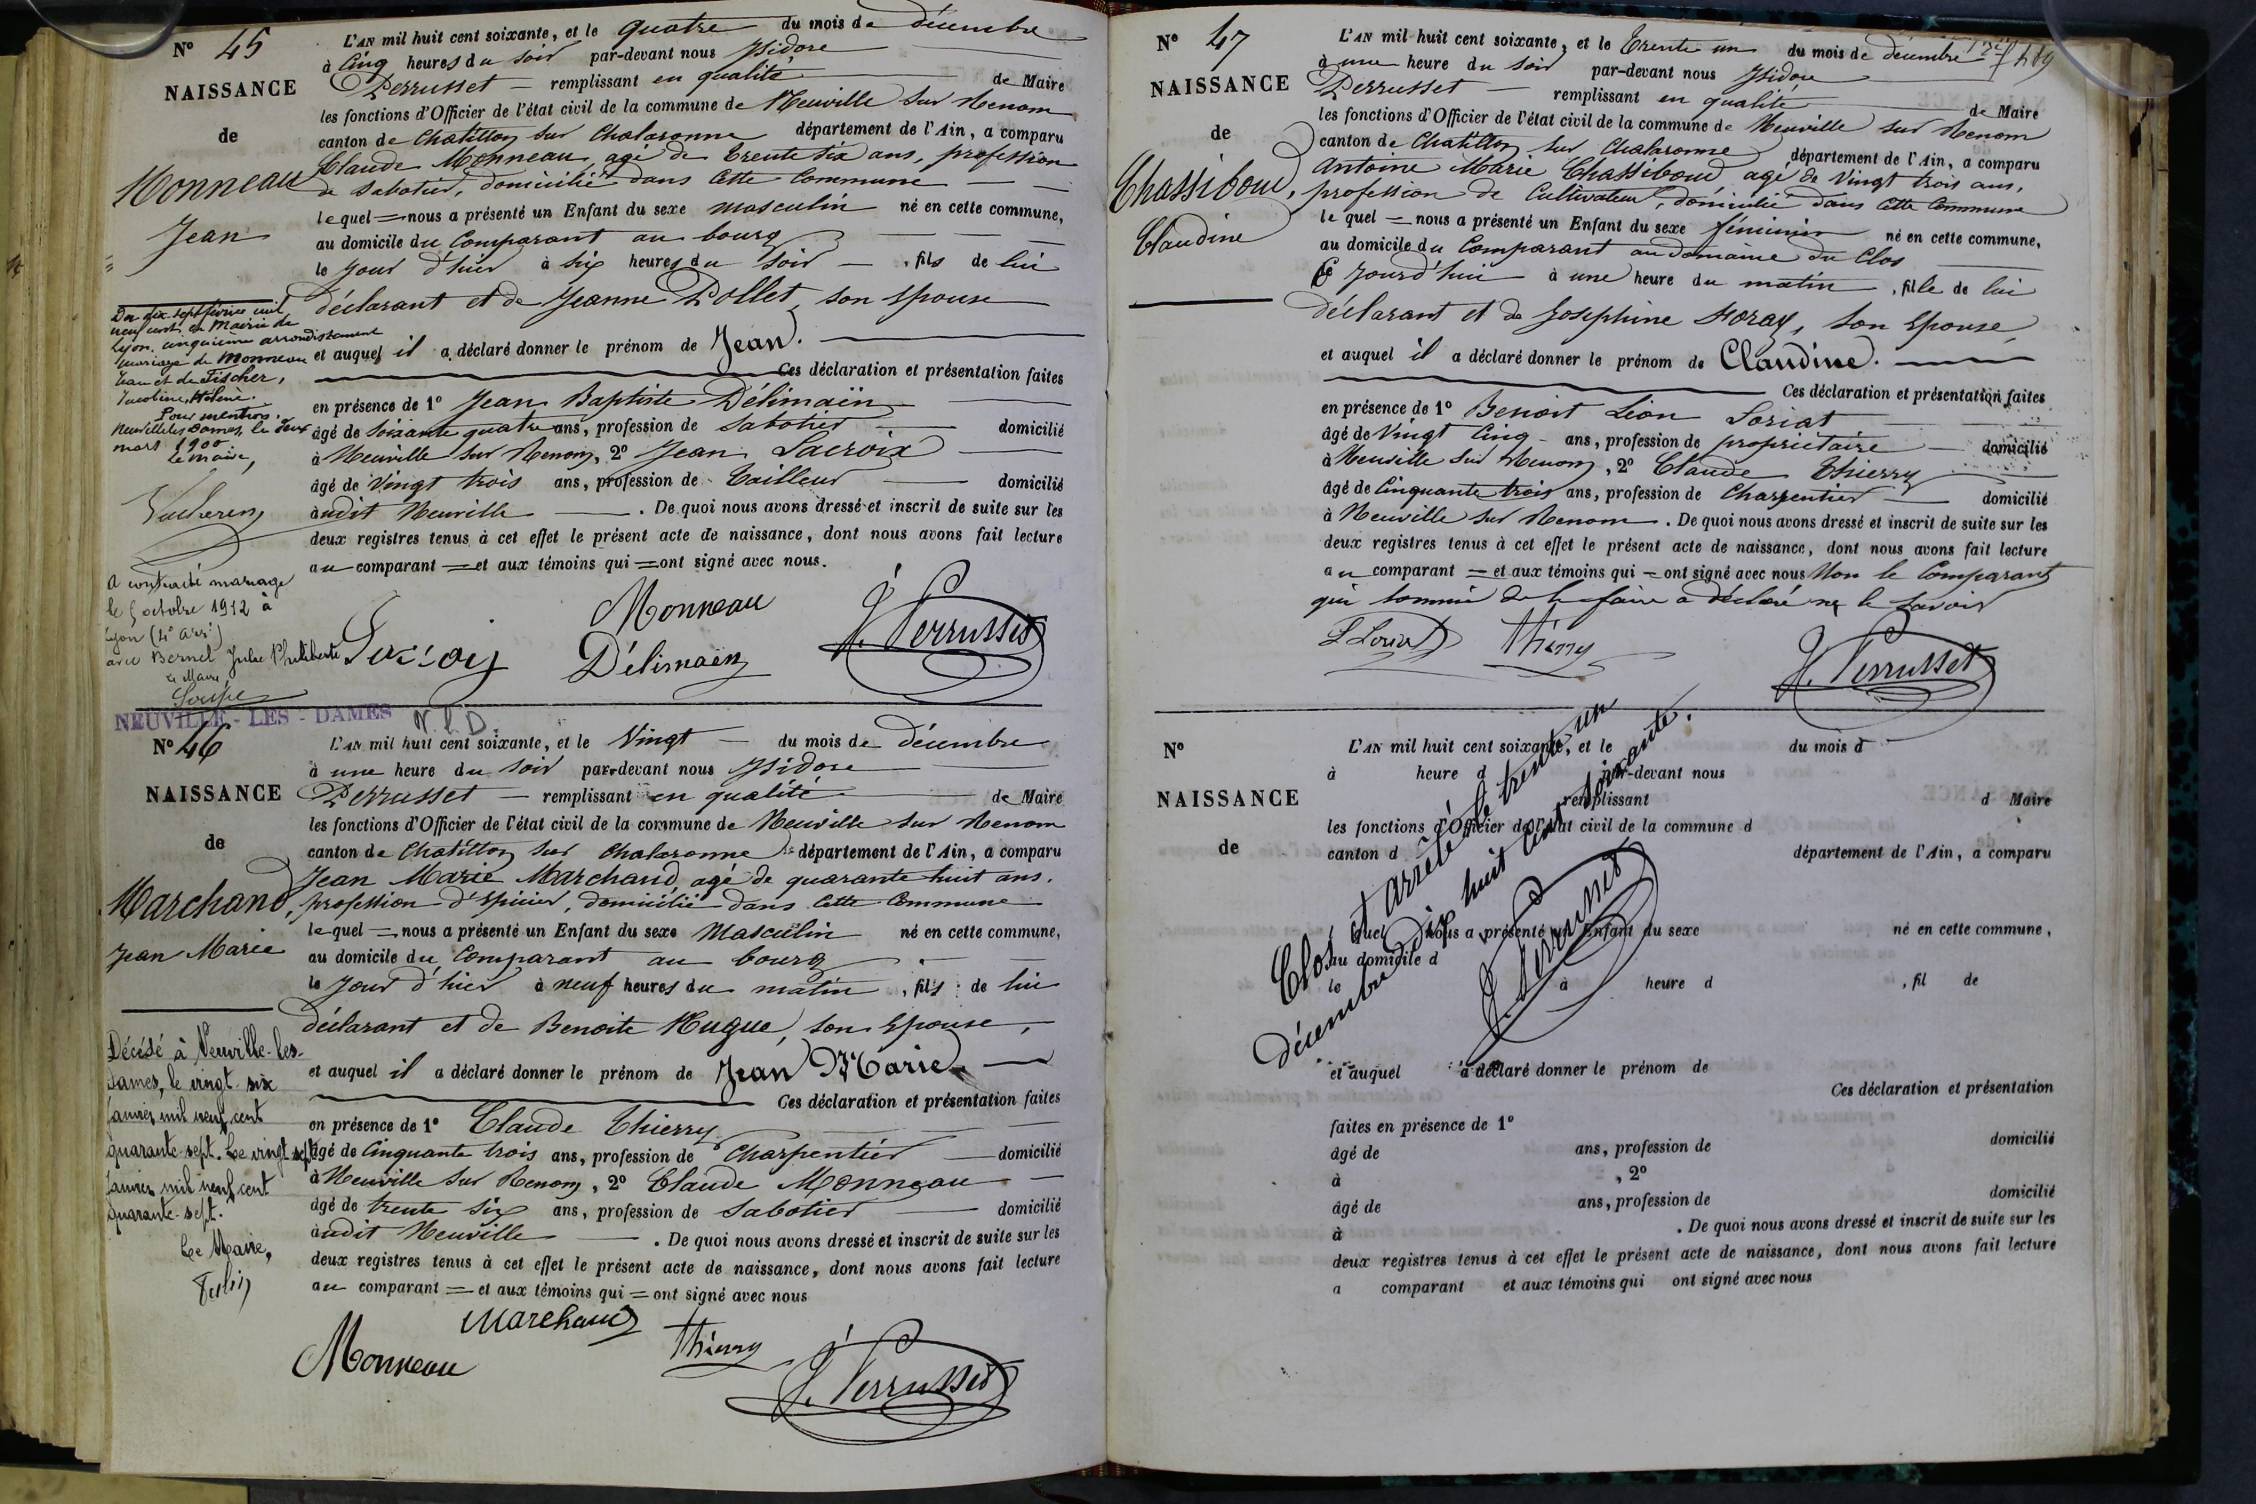 N° 45
NAISSANCE
de
Monneau
Jean
L'AN mil huit cent soixante, et le quatre du mois de décembre
à Cinq heures du soir par-devant nous Isidore
Perrusset remplissant en qualité de Maire
les fonctions d'Officier de l'état civil de la commune de Neuville sur Renom
canton de Chatillon sur Chalaronne département de l'Ain, a comparu
Claude Monneau, agé de trente six ans, profession
de sabotier, domicilié dans cette Commune
lequel = nous a présenté un Enfant du sexe masculin né en cette commune,
au domicile du Comparant au bourg
le jour d'hier à six heures du soir, fils de lui
déclarant et de Jeanne Pollet, son épouse
et auquel il a déclaré donner le prénom de Jean.
Ces déclaration et présentation faites
en présence de 1° Jean Baptiste Délimain
âgé de soixante quatre ans, profession de sabotier domicilié
à Neuville sur Renom, 2° Jean Lacroix
âgé de vingt trois ans, profession de Tailleur domicilié
audit Neuville. De quoi nous avons dressé et inscrit de suite sur les
deux registres tenus à cet effet le présent acte de naissance, dont nous avons fait lecture
au comparant = et aux témoins qui = ont signé avec nous.
Monneau
Délimain
J. Perrusset
Du dix-sept février mil
neuf cent, en Mairie de
Lyon, cinquième arrondissement
mariage de Monneau
Jean et de Fischer,
Jacobine, Hélène.
Pour mention.
Neuville les Dames, le deux
mars 1900.
Le maire,
A contracté mariage
le 5 octobre 1912 à
Lyon (4e arrt)
avec Bernel Julie Philiberte
Le Maire,
NEUVILLE-LES-DAMES
N.l.D.
N° 46
NAISSANCE
de
Marchand,
Jean Marie
L'AN mil huit cent soixante, et le Vingt du mois de décembre
à une heure du soir par-devant nous Isidore
Perrusset remplissant en qualité de Maire
les fonctions d'Officier de l'état civil de la commune de Neuville sur Renom
canton de Chatillon sur Chalaronne département de l'Ain, a comparu
Jean Marie Marchand, agé de quarante huit ans,
profession d'épicier, domicilié dans cette Commune
lequel = nous a présenté un Enfant du sexe Masculin né en cette commune,
au domicile du Comparant au bourg
le jour d'hier à neuf heures du matin, fils de lui
déclarant et de Benoite Hugue, son épouse,
et auquel il a déclaré donner le prénom de Jean Marie.
Ces déclaration et présentation faites
en présence de 1° Claude Thierry
âgé de Cinquante trois ans, profession de Charpentier domicilié
à Neuville sur Renom, 2° Claude Monneau
âgé de trente six ans, profession de sabotier domicilié
audit Neuville. De quoi nous avons dressé et inscrit de suite sur les
deux registres tenus à cet effet le présent acte de naissance, dont nous avons fait lecture
au comparant = et aux témoins qui = ont signé avec nous
Marchand
Monneau
Thierry
J. Perrusset
Décédé à Neuville-les-
Dames, le vingt six
janvier mil neuf cent
quarante-sept. Le vingt sept
janvier mil neuf cent
quarante-sept.
Le Maire,
N° 47
NAISSANCE
de
Chassiboud,
Claudine
L'AN mil huit cent soixante, et le Trente un du mois de décembre
à une heure du soir par-devant nous Isidore
Perrusset remplissant en qualité de Maire
les fonctions d'Officier de l'état civil de la commune de Neuville sur Renom
canton de Chatillon sur Chalaronne département de l'Ain, a comparu
Antoine Marie Chassiboud agé de vingt trois ans,
profession de Cultivateur, domicilié dans cette Commune
lequel = nous a présenté un Enfant du sexe féminin né en cette commune,
au domicile du Comparant au domaine du Clos
Ce jourd'hui à une heure du matin, fille de lui
déclarant et de Josephine Foray, son épouse,
et auquel il a déclaré donner le prénom de Claudine.
Ces déclaration et présentation faites
en présence de 1° Benoit Léon Loriat
âgé de Vingt Cinq ans, profession de propriétaire domicilié
à Neuville sur Renom, 2° Claude Thierry
âgé de Cinquante trois ans, profession de Charpentier domicilié
à Neuville sur Renom. De quoi nous avons dressé et inscrit de suite sur les
deux registres tenus à cet effet le présent acte de naissance, dont nous avons fait lecture
au comparant = et aux témoins qui = ont signé avec nous Non le Comparant
qui sommé de le faire a déclaré ne le savoir
L Loriat
Thierry
J. Perrusset
N°
NAISSANCE
de
L'AN mil huit cent soixante, et le du mois d
à heure d par-devant nous
remplissant d Maire
les fonctions d'Officier de l'état civil de la commune d
canton d département de l'Ain, a comparu
quel nous a présenté Enfant du sexe né en cette commune,
au domicile d
le à heure d , fil de
et auquel a déclaré donner le prénom de
Ces déclaration et présentation
faites en présence de 1°
âgé de ans, profession de domicilié
à , 2°
âgé de ans, profession de domicilié
à . De quoi nous avons dressé et inscrit de suite sur les
deux registres tenus à cet effet le présent acte de naissance, dont nous avons fait lecture
a comparant et aux témoins qui ont signé avec nous
Clos et arrêté le trente un
décembre dix huit cent soixante.
J. Perrusset